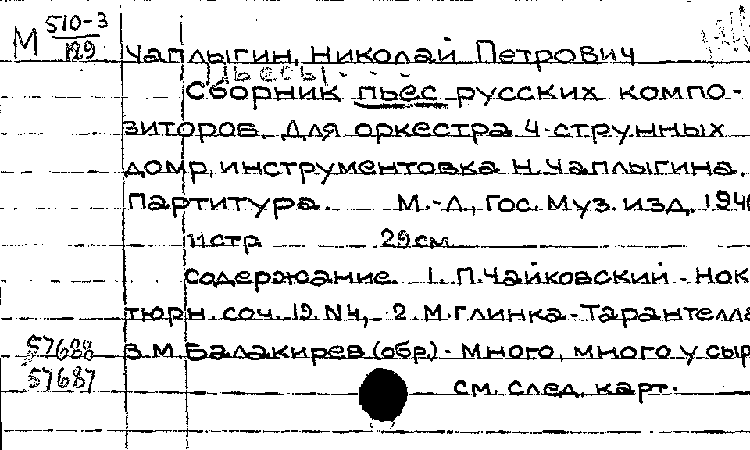 М 510-3
129
Чаплыгин, Николай Петрович
Пьесы...
Сборник пьес русских компо-
зиторов. Для оркестра 4-струнных
домр, инструментовка Н. Чаплыгина.
Партитура. М.-Л., Гос. Муз. изд. 194
11 стр 29см
Содержание. 1. П. Чайковский - Нок
тюрн. соч. 19. N4, - 2. М. Глинка - Тарантелла
57688 3. М. Балакирев (обр.) - Много, много у сыр
57687
см. след. карт.